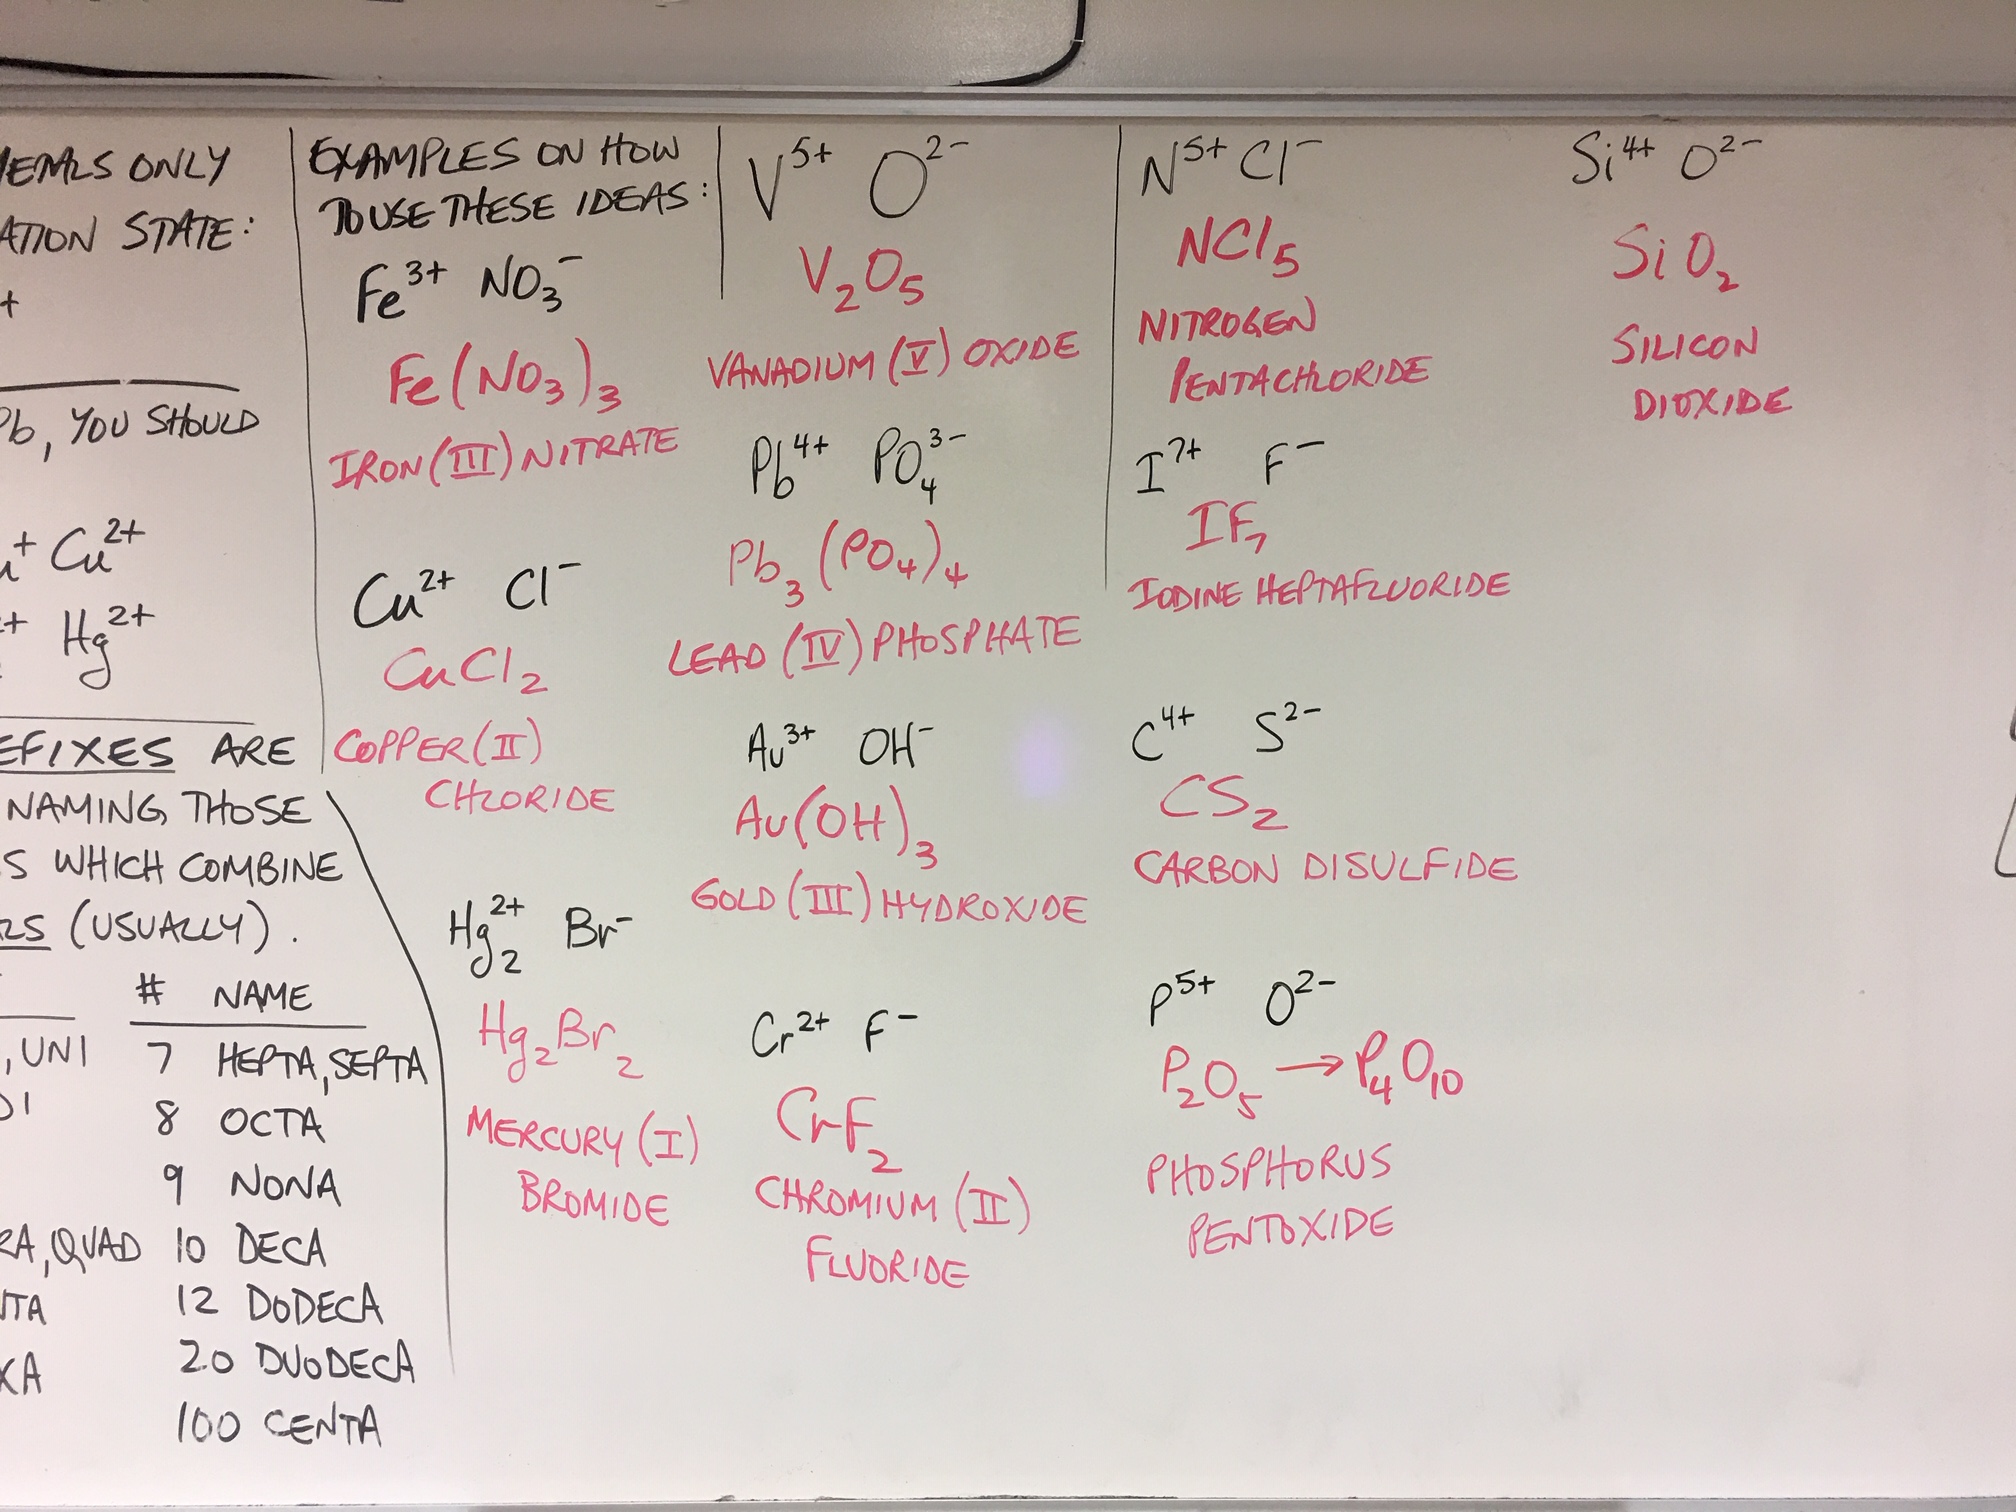 ONLY
STATE:
+
Pb, YOU SHOULD
+ Cu²⁺
+ Hg²⁺
ARE
NAMING THOSE
WHICH COMBINE
(USUALLY).
# NAME
, UNI 7 HEPTA, SEPTA
8 OCTA
9 NONA
, QUAD 10 DECA
12 DODECA
20 DUODECA
100 CENTA
EXAMPLES ON HOW
TO USE THESE IDEAS:
Fe³⁺ NO₃⁻
Fe(NO₃)₃
IRON (III) NITRATE
Cu²⁺ Cl⁻
CuCl₂
COPPER (II)
CHLORIDE
Hg₂²⁺ Br⁻
Hg₂Br₂
MERCURY (I)
BROMIDE
V⁵⁺ O²⁻
V₂O₅
VANADIUM (V) OXIDE
Pb⁴⁺ PO₄³⁻
Pb₃(PO₄)₄
LEAD (IV) PHOSPHATE
Au³⁺ OH⁻
Au(OH)₃
GOLD (III) HYDROXIDE
Cr²⁺ F⁻
CrF₂
CHROMIUM (II)
FLUORIDE
N⁵⁺ Cl⁻
NCl₅
NITROGEN
PENTACHLORIDE
I⁷⁺ F⁻
IF₇
IODINE HEPTAFLUORIDE
C⁴⁺ S²⁻
CS₂
CARBON DISULFIDE
P⁵⁺ O²⁻
P₂O₅ → P₄O₁₀
PHOSPHORUS
PENTOXIDE
Si⁴⁺ O²⁻
SiO₂
SILICON
DIOXIDE